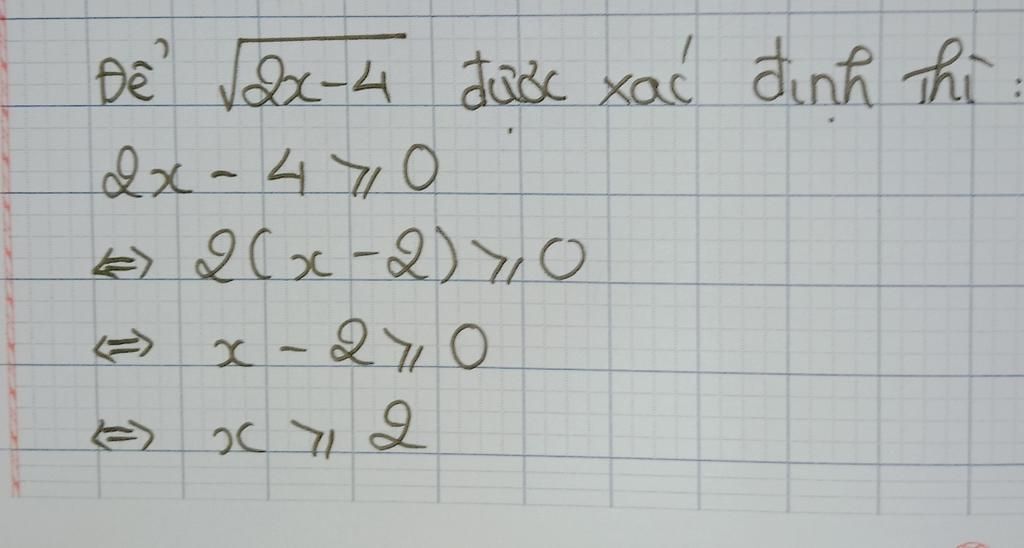 Để √2x-4 được xác định thì:
2x - 4 ⩾ 0
⇔ 2(x - 2) ⩾ 0
⇔ x - 2 ⩾ 0
⇔ x ⩾ 2